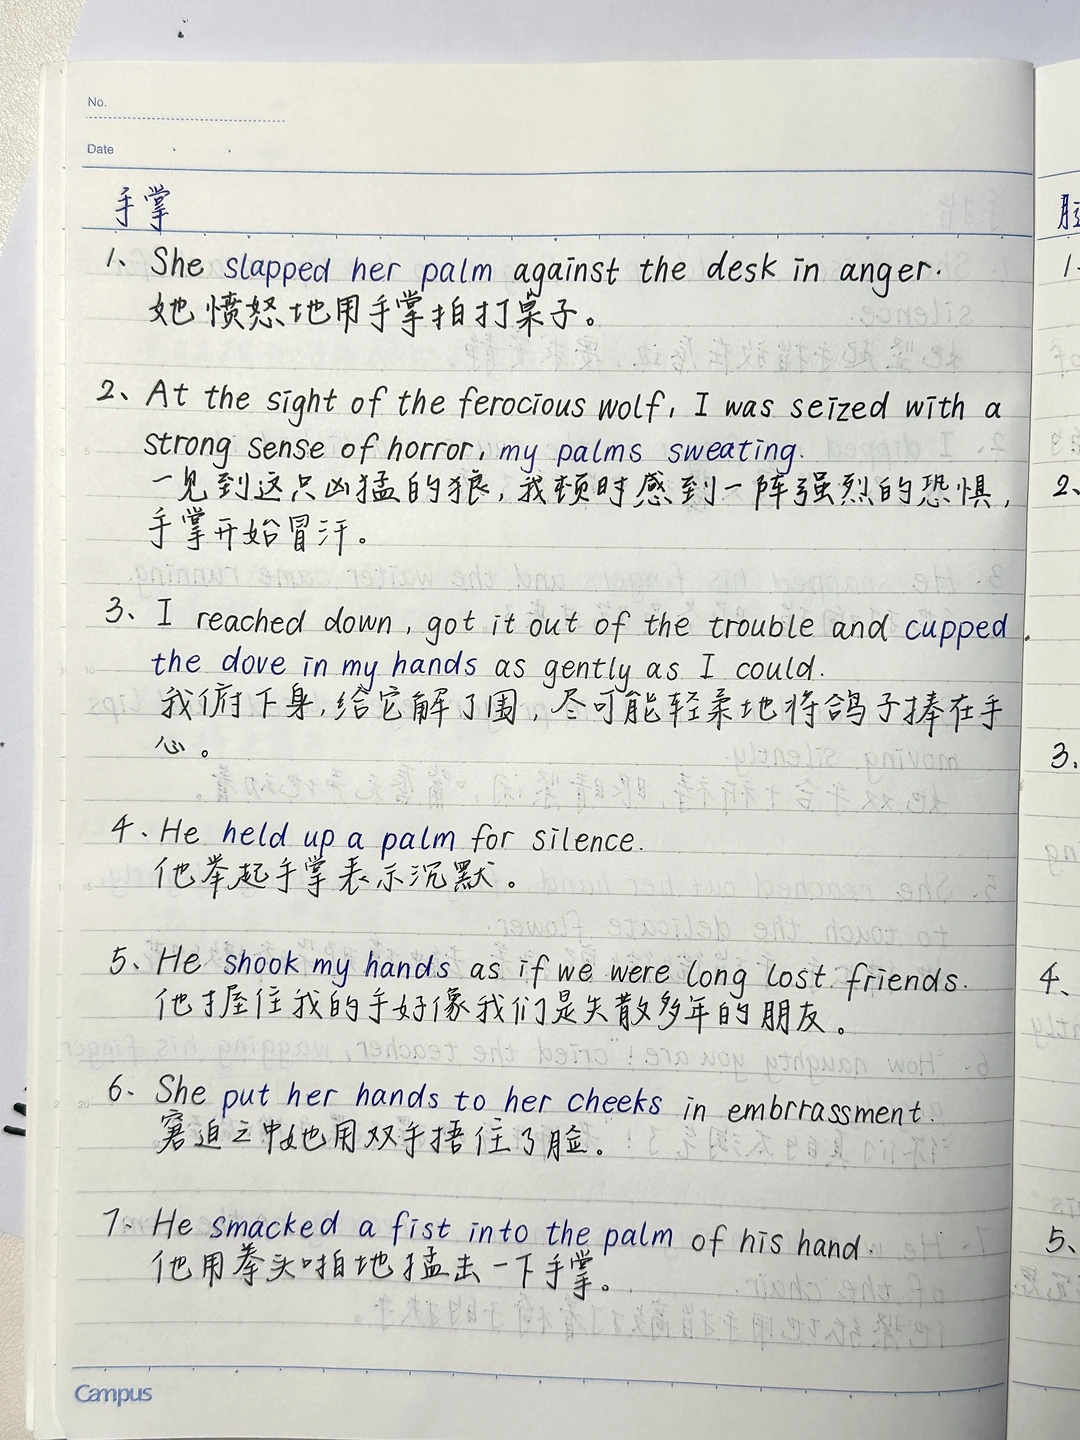 No.
Date
手掌
1、She slapped her palm against the desk in anger.
她愤怒地用手掌拍打桌子。
2、At the sight of the ferocious wolf, I was seized with a
strong sense of horror, my palms sweating.
一见到这只凶猛的狼，我顿时感到一阵强烈的恐惧，
手掌开始冒汗。
3、I reached down, got it out of the trouble and cupped
the dove in my hands as gently as I could.
我俯下身，给它解了围，尽可能轻柔地将鸽子捧在手
心。
4. He held up a palm for silence.
他举起手掌表示沉默。
5. He shook my hands as if we were long lost friends.
他握住我的手好像我们是失散多年的朋友。
6. She put her hands to her cheeks in embrrassment.
窘迫之中她用双手捂住了脸。
7. He smacked a fist into the palm of his hand.
他用拳头啪地猛击一下手掌。
Campus
1.
2、
3.
4、
5、